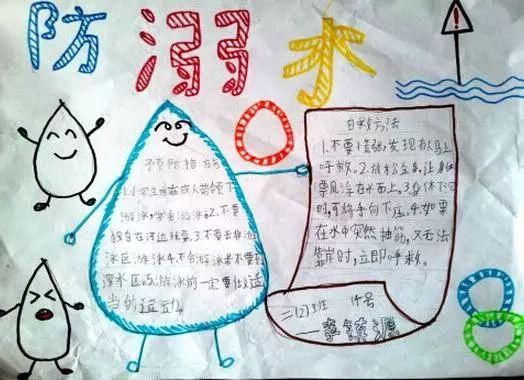 防溺水
!
预防措施
1.小学生应在成人带领下
游泳,学会游泳。2.不要
独自在河边玩耍。3.不要去非游
泳区游泳。4.不会游泳者不要到
深水区。5.游泳前一定要做适
当的运动。
自救方法
1.不要慌张,发现有人马上
呼救。2.放松全身,让身体
漂浮在水面上。3.身体下沉
时,可将手向下压。4.如果
在水中突然抽筋,又无法
靠岸时,立即呼救。
二(2)班 14号
李镇源